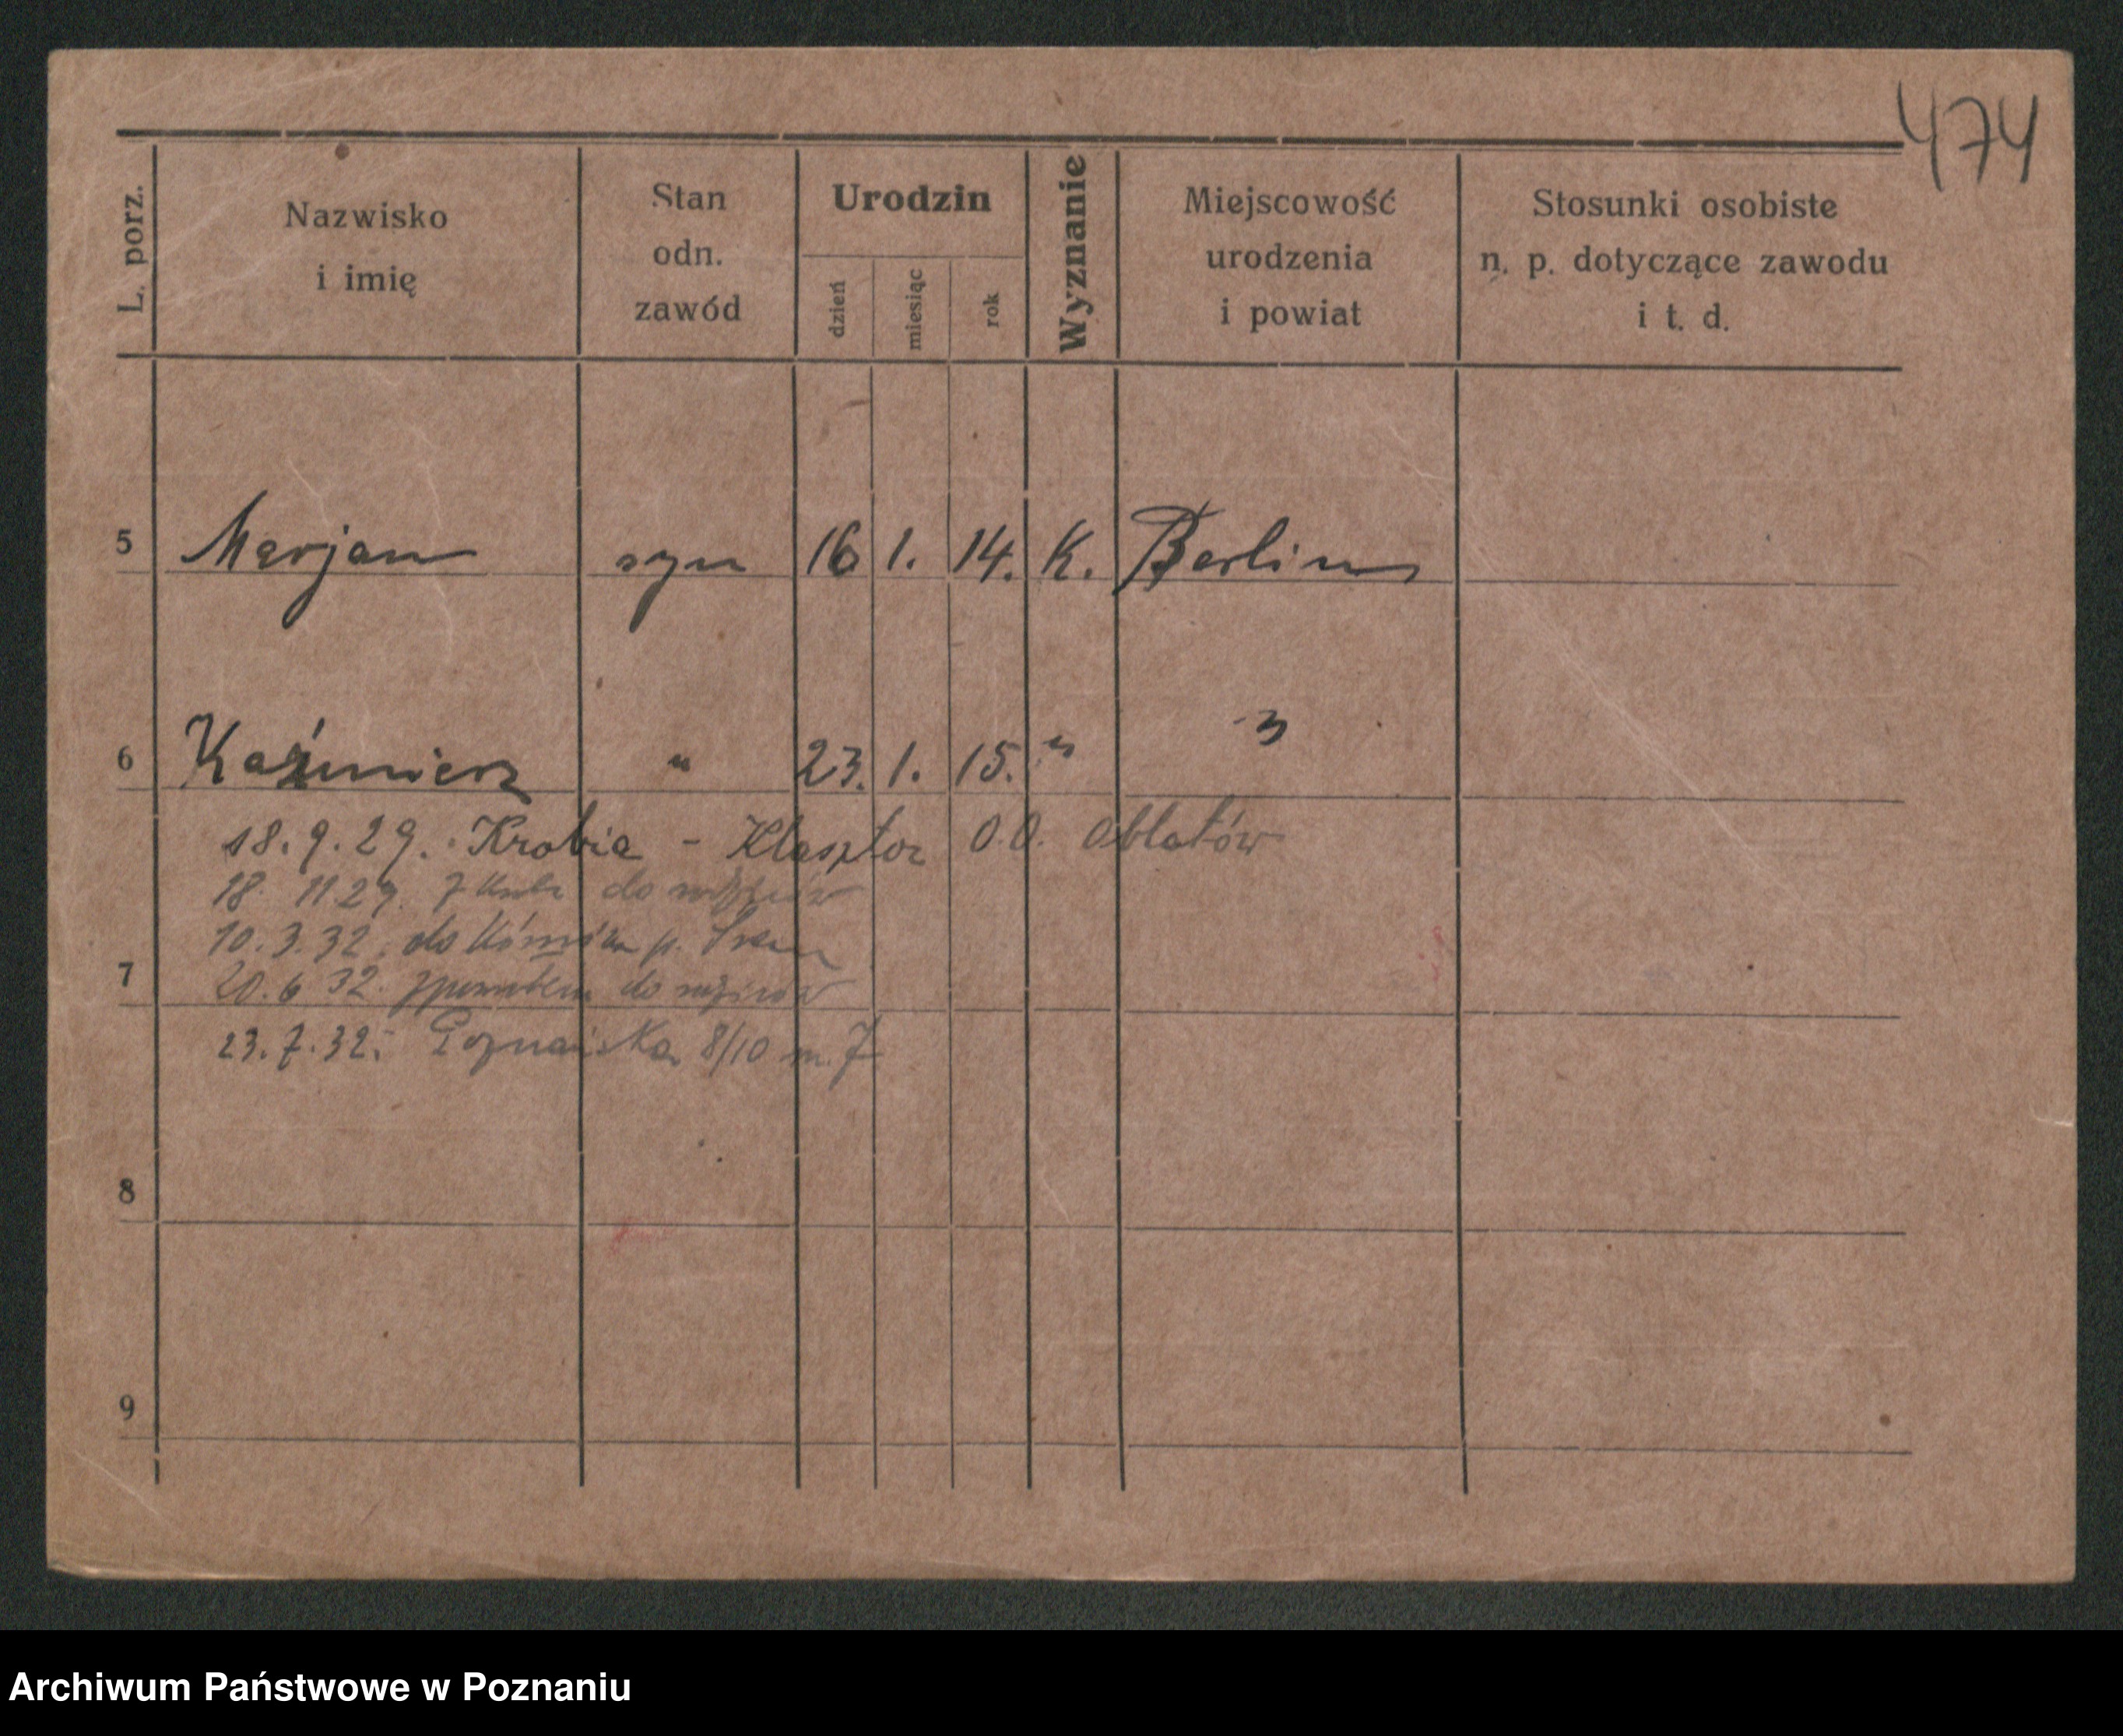 474
L. porz.
Nazwisko
i imię
Stan
odn.
zawód
Urodzin
dzień
miesiąc
rok
Wyznanie
Miejscowość
urodzenia
i powiat
Stosunki osobiste
n. p. dotyczące zawodu
i t. d.
5 Marjan syn 16 1. 14. K. Berlin
6 Kaźmierz " 23. 1. 15. " "
18.9.29. Krobia - Klasztor O.O. Oblatów
18. 11 29. do
10.3.32. do p.
7
20.6 32. do
23.7.32. Poznańska 8/10 m. 7
8
9
Archiwum Państwowe w Poznaniu